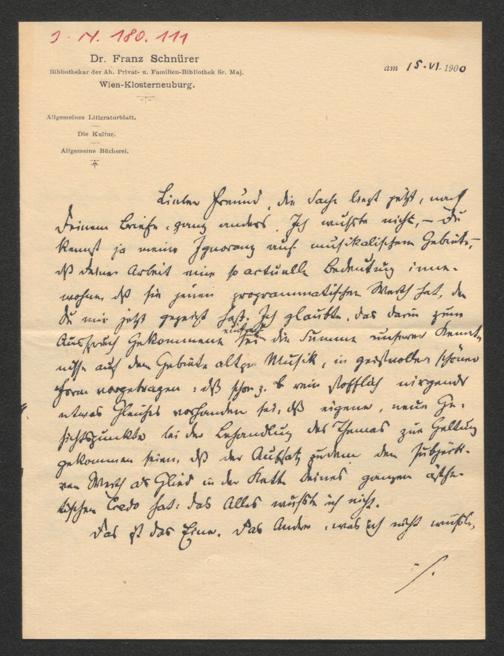 I. N. 180.111
Dr. Franz Schnürer
Bibliothekar der Ah. Privat- u. Familien-Bibliothek Sr. Maj.
Wien-Klosterneuburg.
am 15.VI.1900
Allgemeines Litteraturblatt.
Die Kultur.
Allgemeine Bücherei.
Lieber Freund, die Sache liegt jetzt, nach
Deinem Briefe, ganz anders. Ich wußte nicht, – Du
kennst ja meine Ignoranz auf musikalischem Gebiete, –
daß Deiner Arbeit eine so actuelle Bedeutung inne-
wohne, daß sie jenen programmatischen Werth hat, den
Du mir jetzt gezeigt hast. Ich glaubte, das darin zum
Ausspruch Gekommene sei die Summe unserer Kennt-
nisse auf dem Gebiete alter Musik, in geistvoller schöner
Form vorgetragen; daß schon z. B. rein stofflich nirgends
etwas Gleiches vorhanden sei, daß eigene, neue Ge-
sichtspunkte bei der Behandlung des Themas zur Geltung
gekommen seien, daß der Aufsatz zudem den
Werth als Glied in der Kette Deines ganzen ästhe-
tischen Credo hat: das Alles wußte ich nicht.
Das ist das Eine. Das Andere, was ich nicht wußte,